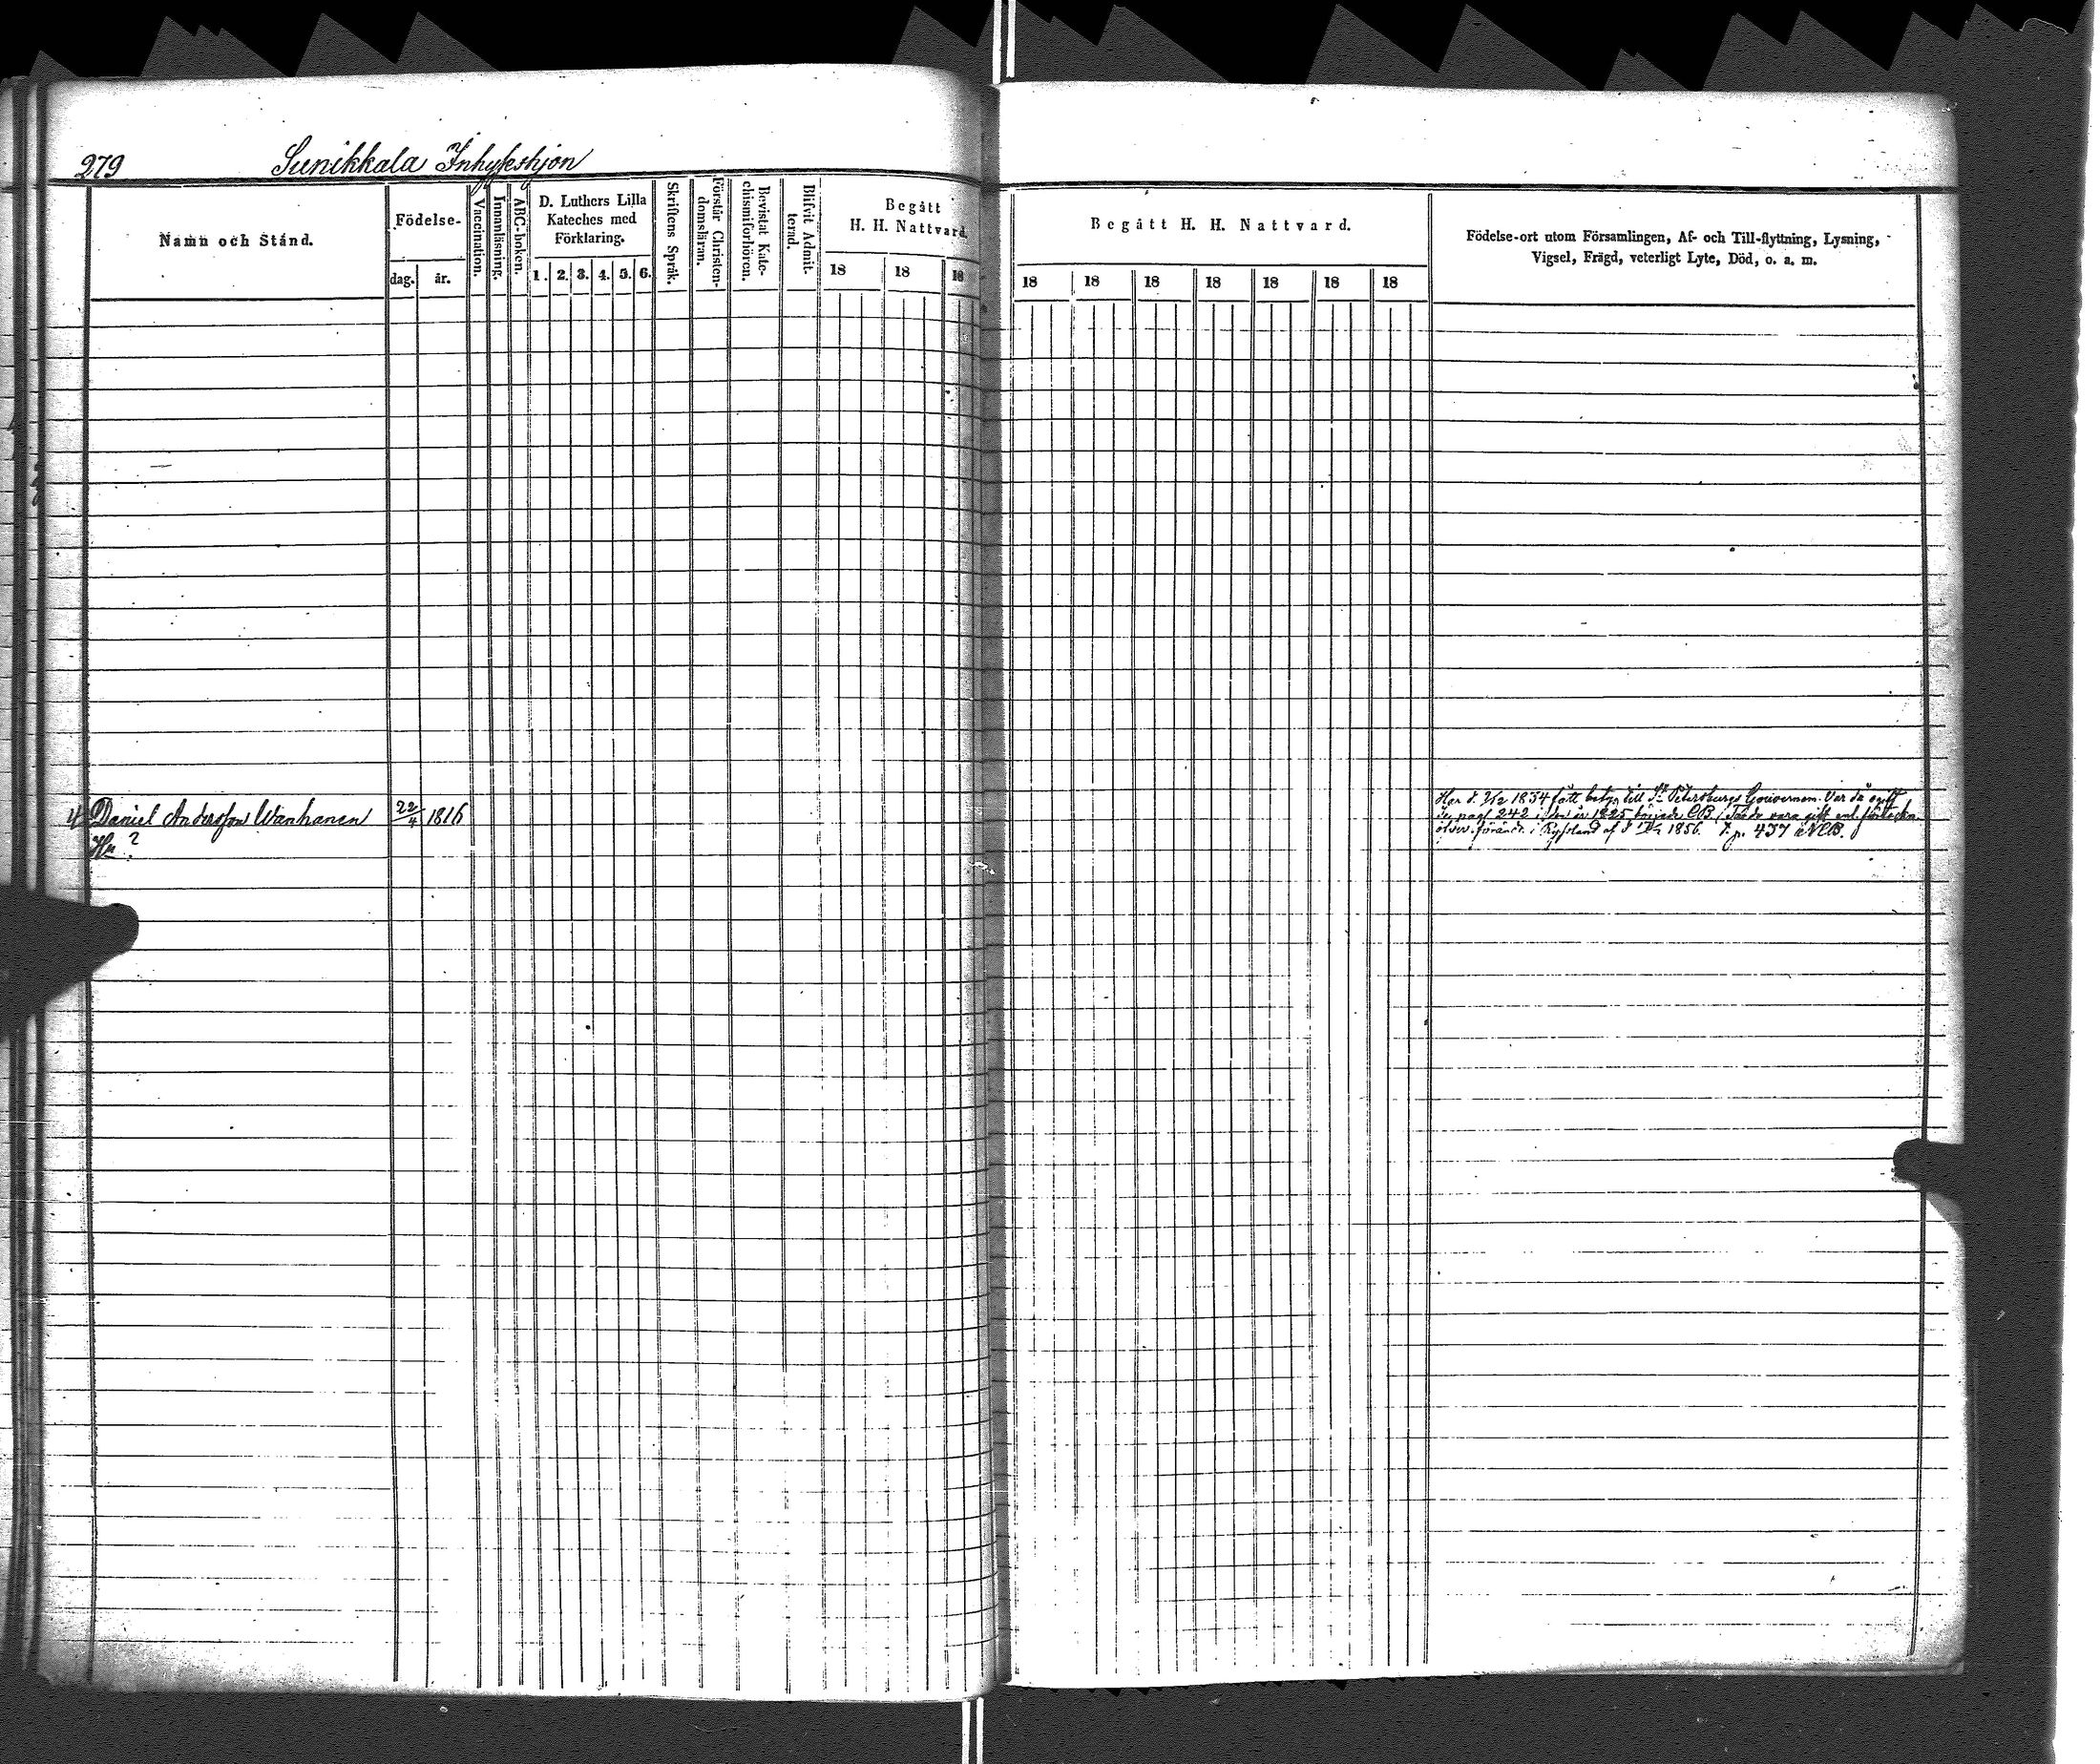 279 Sunikkala Inhyseshjon
Namn och Stånd.
Födelse-
dag. år.
Vaccination.
Innanläsning.
ABC-boken.
D. Luthers Lilla
Kateches med
Förklaring.
1. 2. 3. 4. 5. 6.
Skriftens Språk.
Förstår Christen-
domsläran.
Bevistat Kate-
chismiförhören.
Blifvit Admit-
terad.
Begått
H. H. Nattvard.
18 18 18
Begått H. H. Nattvard.
18 18 18 18 18 18 18
Födelse-ort utom Församlingen, Af- och Till-flyttning, Lysning,
Vigsel, Frägd, veterligt Lyte, Död, o. a. m.
4 Daniel Andersson Wanhanen 22/4 1816
Hu ?
Har d. 3/12 1854 fått betyg till St Petersburgs Gouvernem. Var då ogift
Se pag 242 i den år 1825 började CB. Torde vara gift enl. förteckn.
i Ryssland af d 1856. p. 437 i NCB.